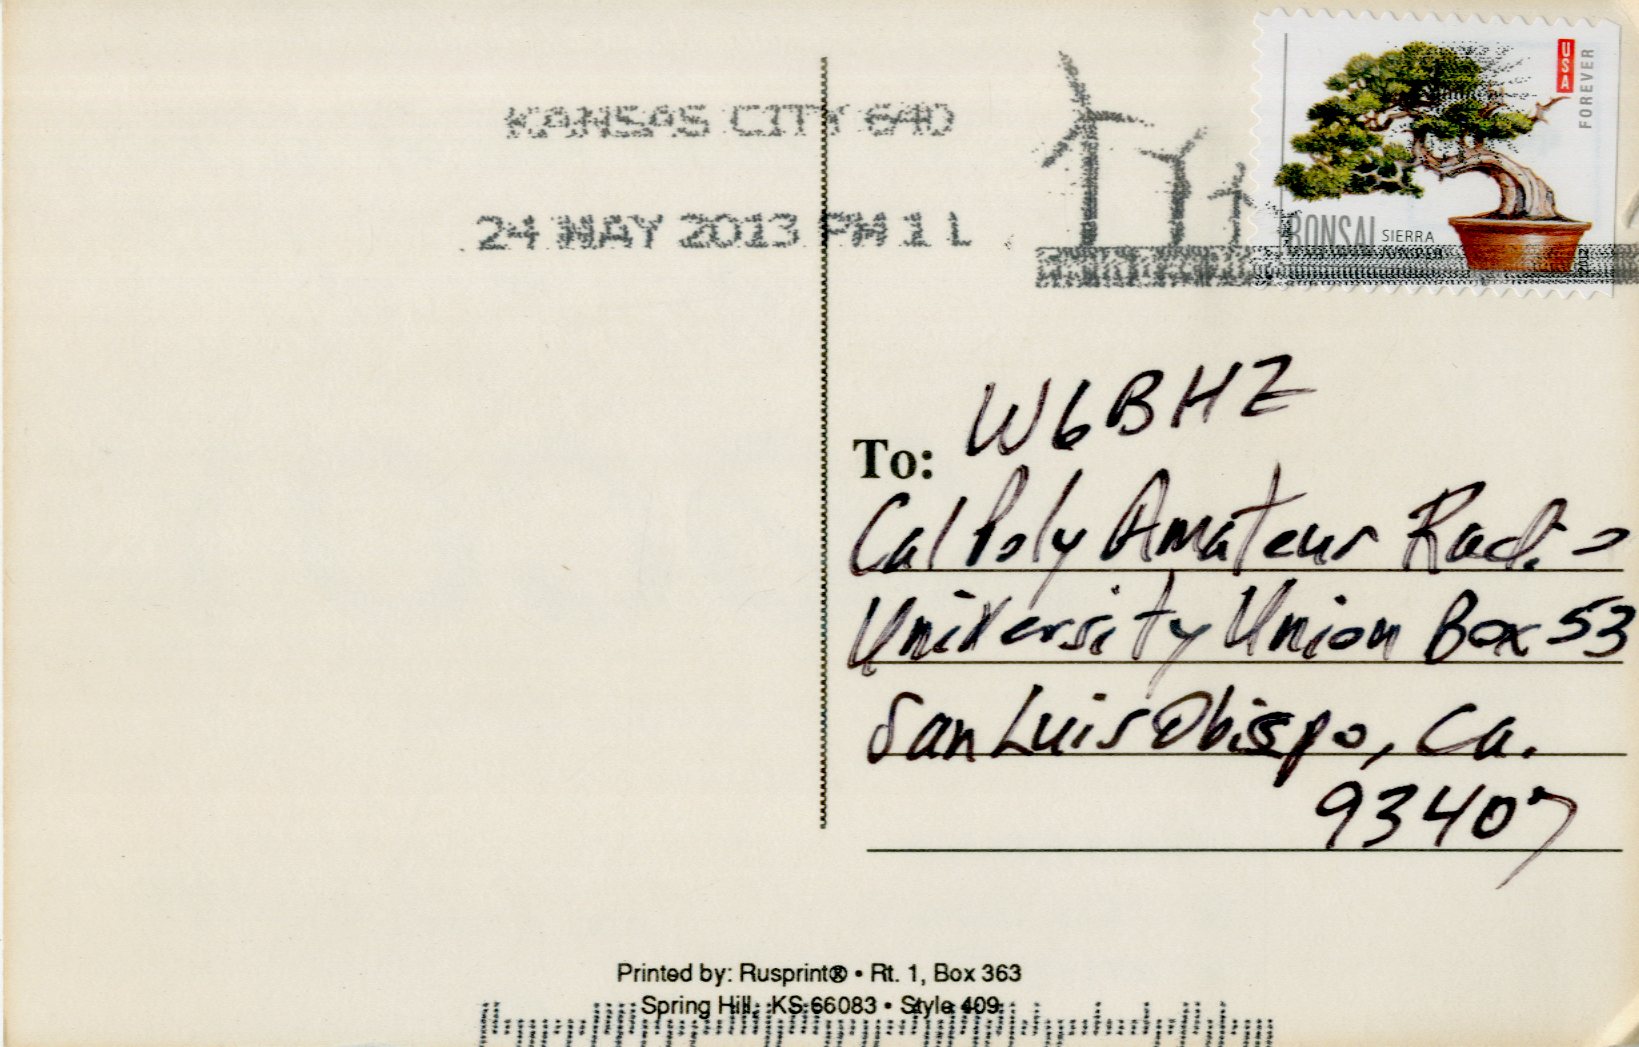 KANSAS CITY 640
24 MAY 2013 PM 1 L
USA
FOREVER
BONSAI SIERRA
JUNIPER
2012
To: W6BHZ
Cal Poly Amateur Radio
University Union Box 53
San Luis Obispo, Ca.
93407
Printed by: Rusprint® • Rt. 1, Box 363
Spring Hill, KS 66083 • Style 409